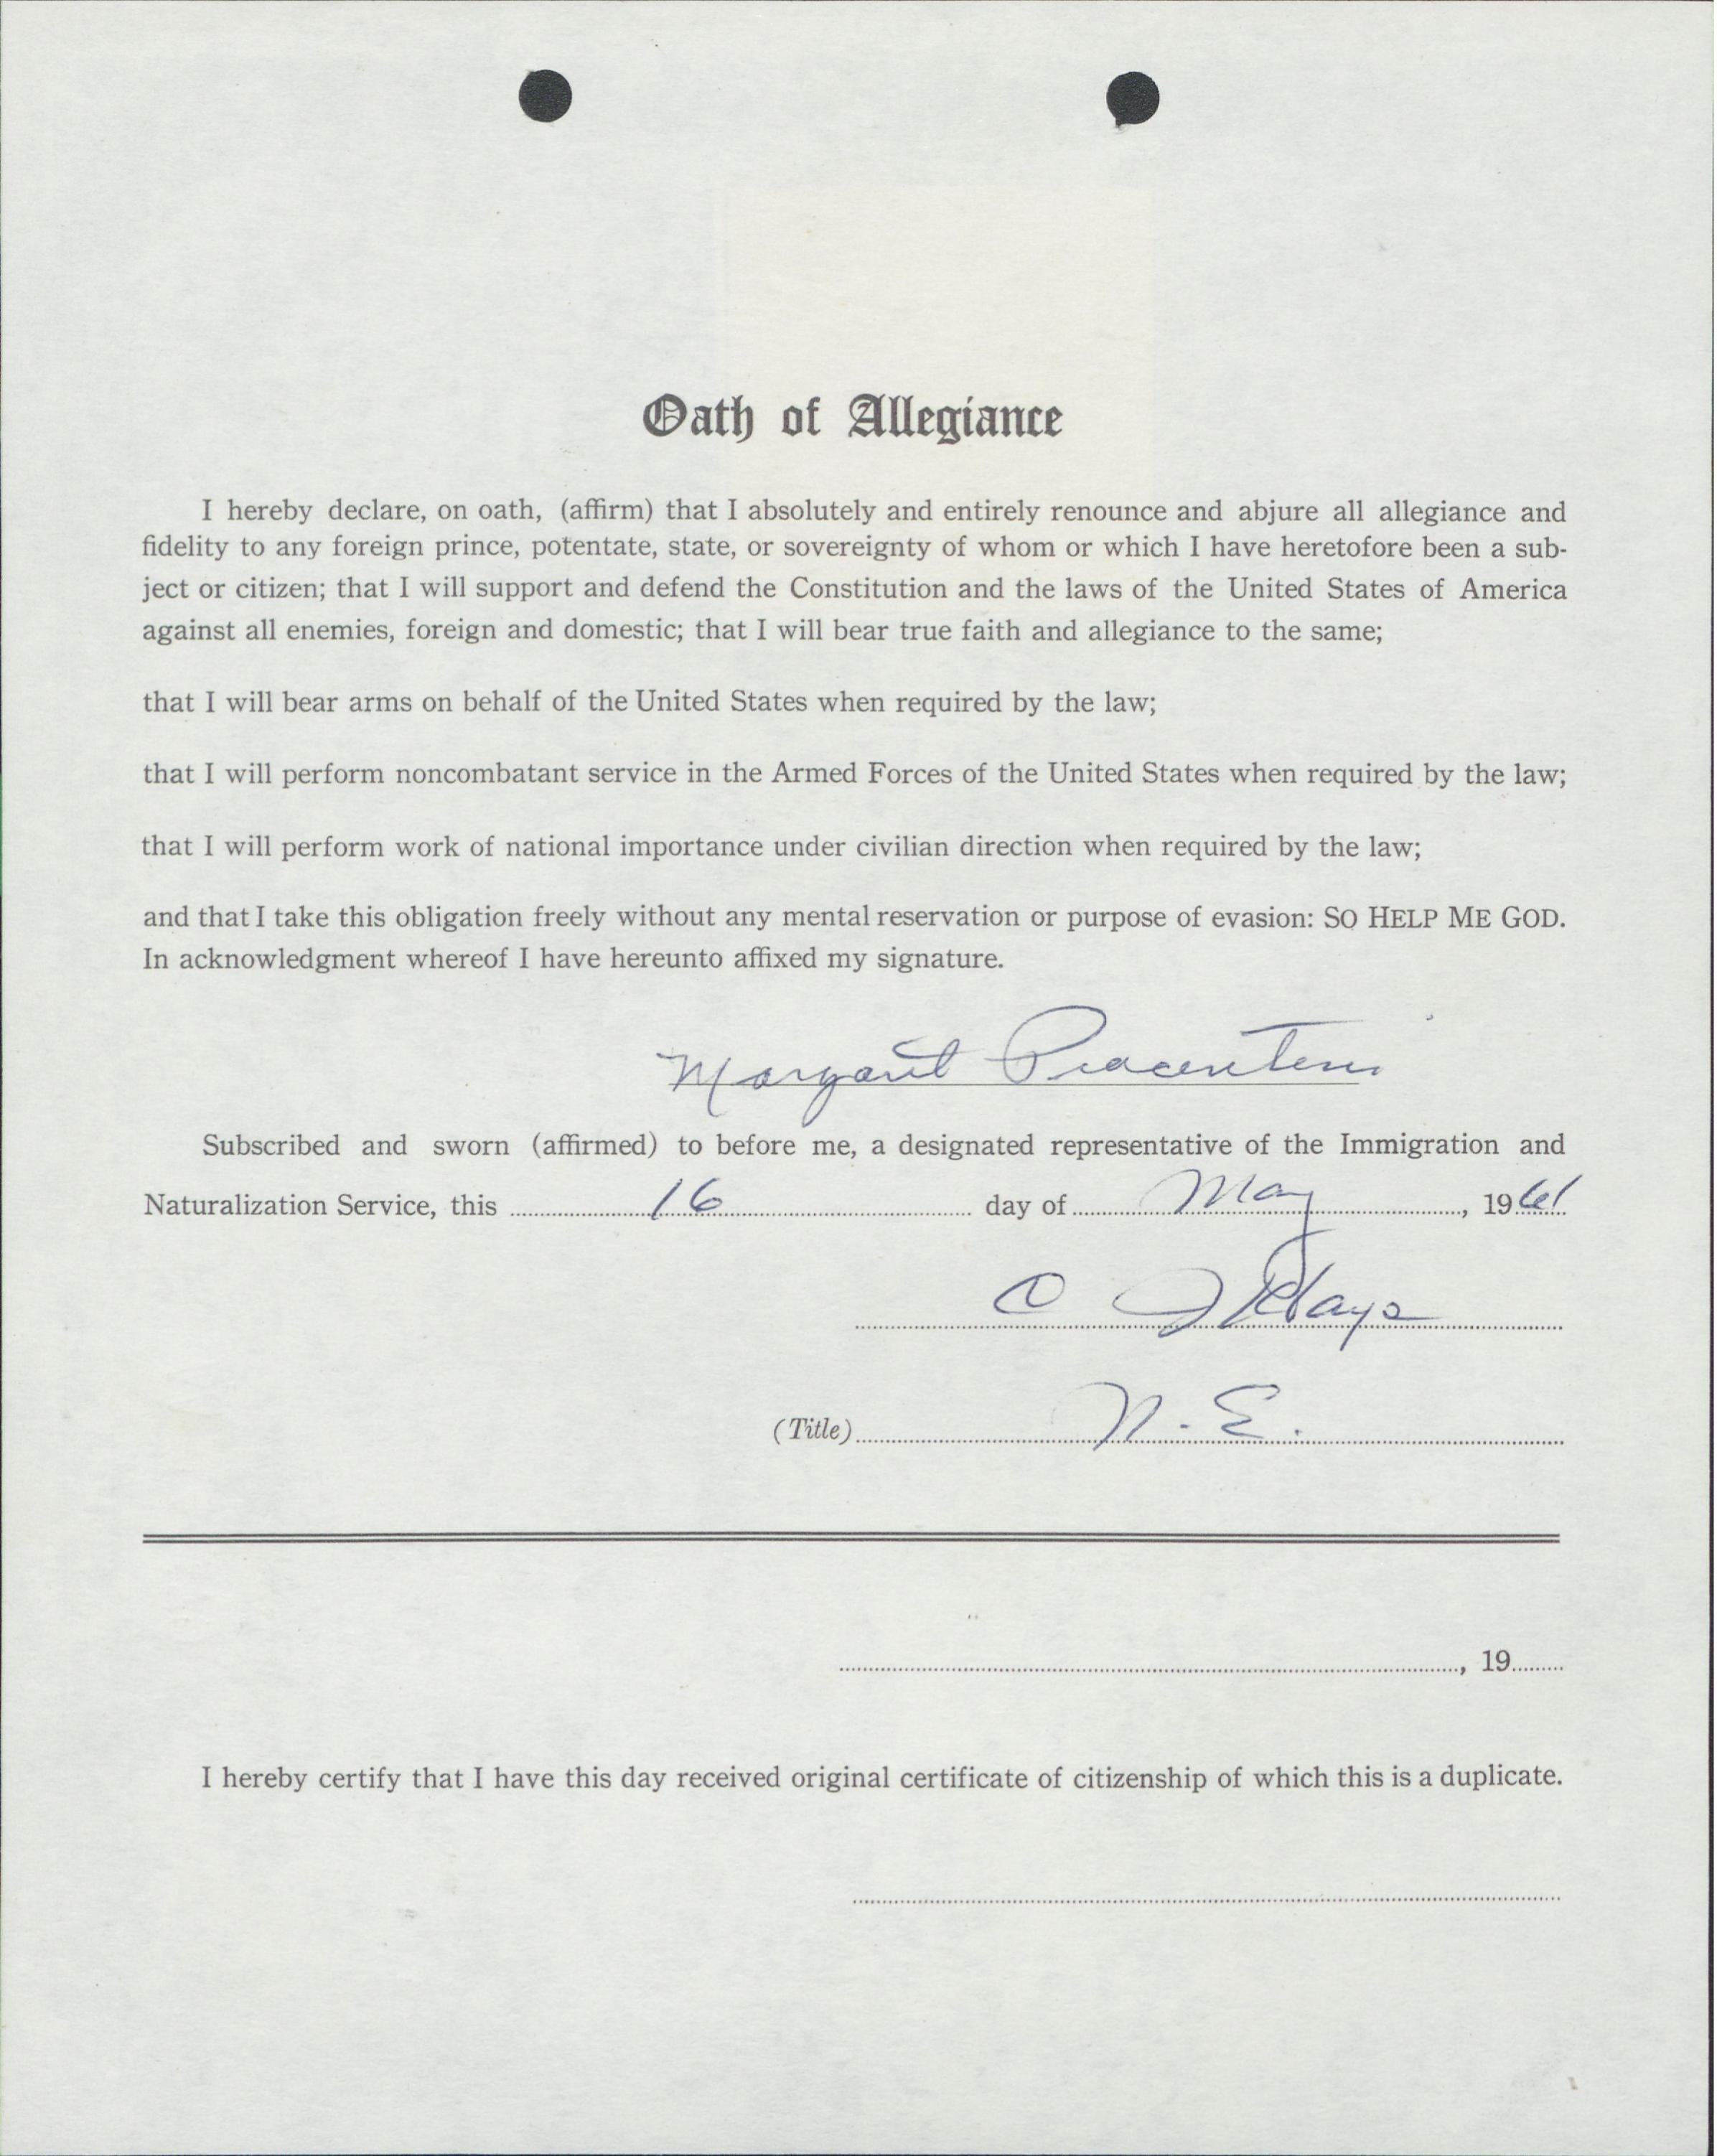 Oath of Allegiance
I hereby declare, on oath, (affirm) that I absolutely and entirely renounce and abjure all allegiance and
fidelity to any foreign prince, potentate, state, or sovereignty of whom or which I have heretofore been a sub-
ject or citizen; that I will support and defend the Constitution and the laws of the United States of America
against all enemies, foreign and domestic; that I will bear true faith and allegiance to the same;
that I will bear arms on behalf of the United States when required by the law;
that I will perform noncombatant service in the Armed Forces of the United States when required by the law;
that I will perform work of national importance under civilian direction when required by the law;
and that I take this obligation freely without any mental reservation or purpose of evasion: SO HELP ME GOD.
In acknowledgment whereof I have hereunto affixed my signature.
Margaret Piacentini
Subscribed and sworn (affirmed) to before me, a designated representative of the Immigration and
Naturalization Service, this 16 day of May, 1961
C J Hays
(Title) N.E.
, 19
I hereby certify that I have this day received original certificate of citizenship of which this is a duplicate.